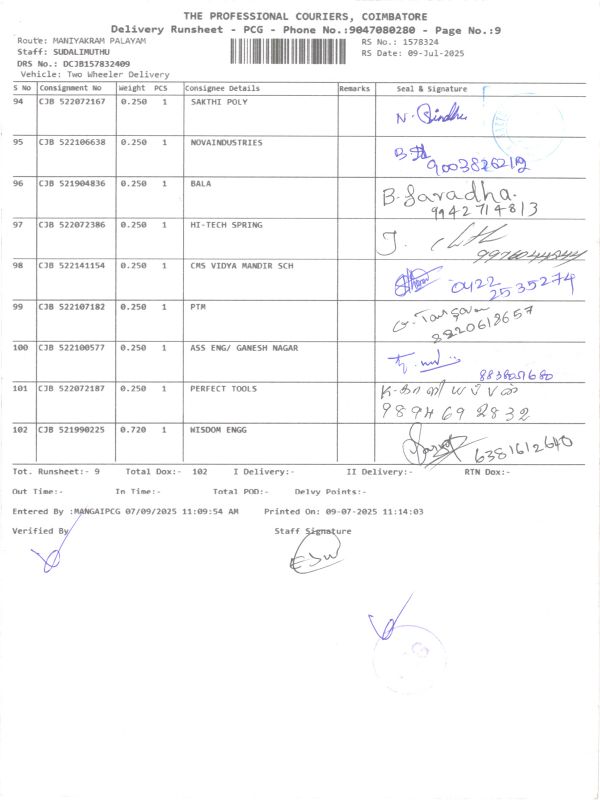 THE PROFESSIONAL COURIERS, COIMBATORE
Delivery Runsheet - PCG - Phone No.:9047080280 - Page No.:9
Route: MANIYAKRAM PALAYAM RS No.: 1578324
Staff: SUDALIMUTHU RS Date: 09-Jul-2025
DRS No.: DCJB157832409
Vehicle: Two Wheeler Delivery
S No Consignment No Weight PCS Consignee Details Remarks Seal & Signature
94 CJB 522072167 0.250 1 SAKTHI POLY
N.
95 CJB 522106638 0.250 1 NOVAINDUSTRIES
96 CJB 521904836 0.250 1 BALA B. Saradha.
9942714813
97 CJB 522072386 0.250 1 HI-TECH SPRING
J.
98 CJB 522141154 0.250 1 CMS VIDYA MANDIR SCH
0422
2535274
99 CJB 522107182 0.250 1 PTM
8820618657
100 CJB 522100577 0.250 1 ASS ENG/ GANESH NAGAR
101 CJB 522072187 0.250 1 PERFECT TOOLS
98946 92832
102 CJB 521990225 0.720 1 WISDOM ENGG
6381612640
Tot. Runsheet:- 9 Total Dox:- 102 I Delivery:- II Delivery:- RTN Dox:-
Out Time:- In Time:- Total POD:- Delvy Points:-
Entered By :MANGAIPCG 07/09/2025 11:09:54 AM Printed On: 09-07-2025 11:14:03
Verified By Staff Signature